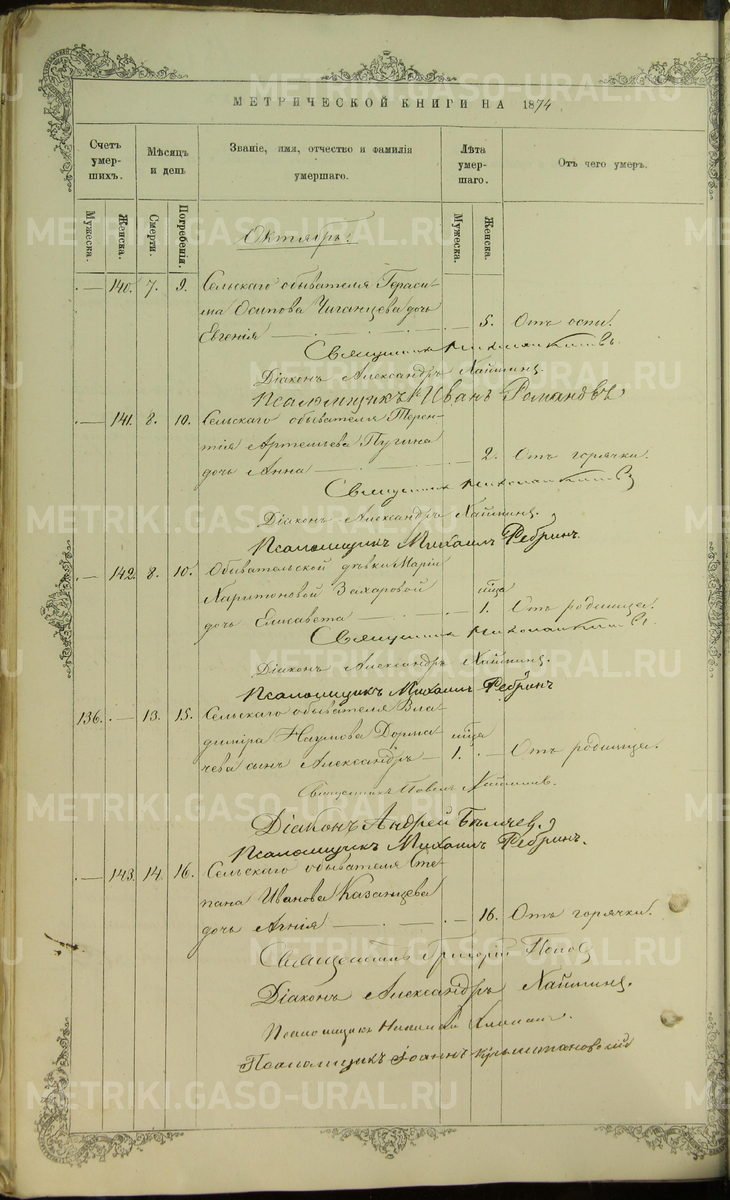 МЕТРИЧЕСКОЙ КНИГИ НА 1874
Счетъ умершихъ.
Мѣсяцъ и день
Званіе, имя, отчество и фамилія умершаго.
Лѣта умершаго.
Отъ чего умеръ.
Мужеска.
Женска.
Смерти.
Погребенія.
Мужеска.
Женска.
Октябрь.
140. 7. 9. Сельскаго обывателя Гераси-
ма Осипова Чиганцева дочь
Евгенія 5. Отъ оспы.
Священникъ
Діаконъ Александръ
Псаломщикъ Иванъ Романовъ
141. 8. 10. Сельскаго обывателя Терен-
тія Артемьева Пугина
дочь Анна 2. Отъ горячки.
Священникъ
Діаконъ Александръ
Псаломщикъ Михаилъ Ребринъ
142. 8. 10. Обывательской дѣвки Маріи
Харитоновой Захаровой
дочь Елисавета 1. Отъ родимца.
Священникъ
Діаконъ Александръ
Псаломщикъ Михаилъ Ребринъ
136. 13. 15. Сельскаго обывателя Вла-
диміра Наумова Дорма-
чева сынъ Александръ 1. Отъ родимца.
Священникъ Павелъ
Діаконъ Андрей Бѣляев.
Псаломщикъ Михаилъ Ребринъ.
143. 14. 16. Сельскаго обывателя Сте-
пана Иванова Казанцева
дочь Агнія 16. Отъ горячки.
Священникъ Григорій Попов
Діаконъ Александръ
Псаломщикъ Николай
Псаломщикъ Іоаннъ
METRIKI.GASO-URAL.RU